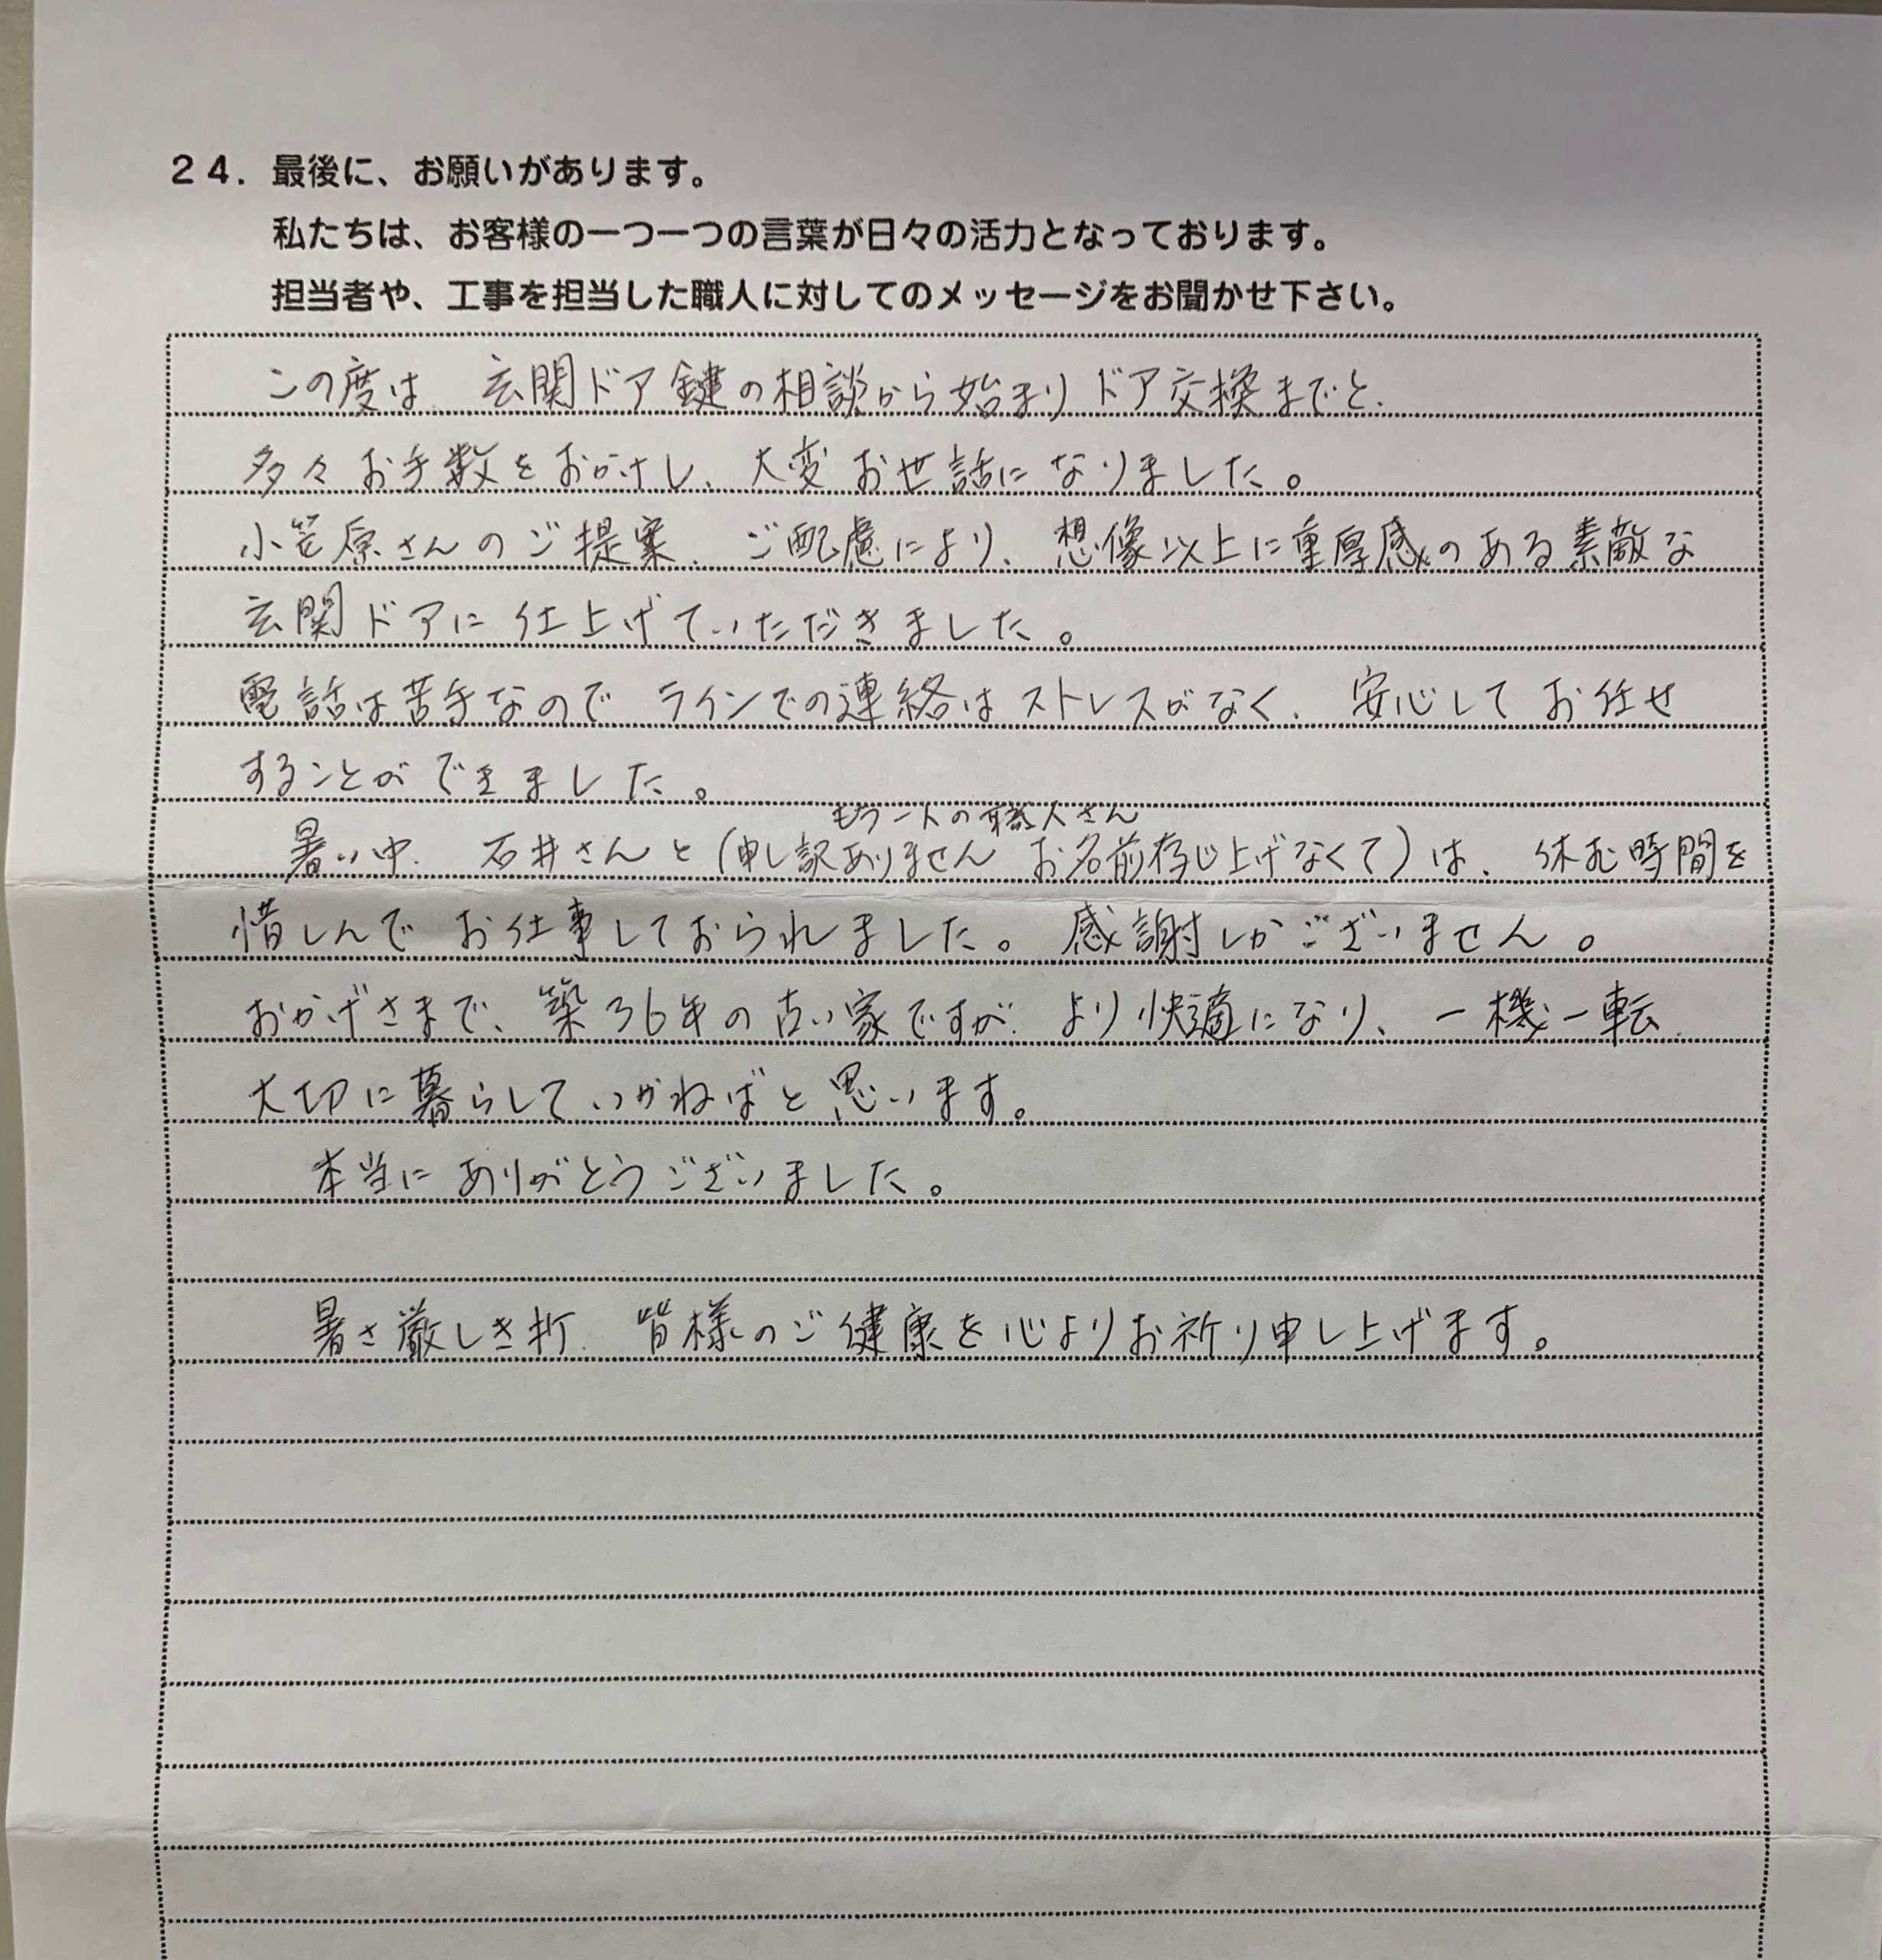 24. 最後に、お願いがあります。
私たちは、お客様の一つ一つの言葉が日々の活力となっております。
担当者や、工事を担当した職人に対してのメッセージをお聞かせ下さい。
この度は、玄関ドア鍵の相談から始まりドア交換までと、
多々お手数をおかけし、大変お世話になりました。
小笠原さんのご提案、ご配慮により、想像以上に重厚感のある素敵な
玄関ドアに仕上げていただきました。
電話は苦手なのでラインでの連絡はストレスがなく、安心してお任せ
することができました。
もう一人の職人さん
暑い中、石井さんと(申し訳ありません お名前存じ上げなくて)は、休む時間を
惜しんでお仕事しておられました。感謝しかございません。
おかげさまで、築36年の古い家ですが、より快適になり、一機一転、
大切に暮らしていかねばと思います。
本当にありがとうございました。
暑さ厳しき折、皆様のご健康を心よりお祈り申し上げます。